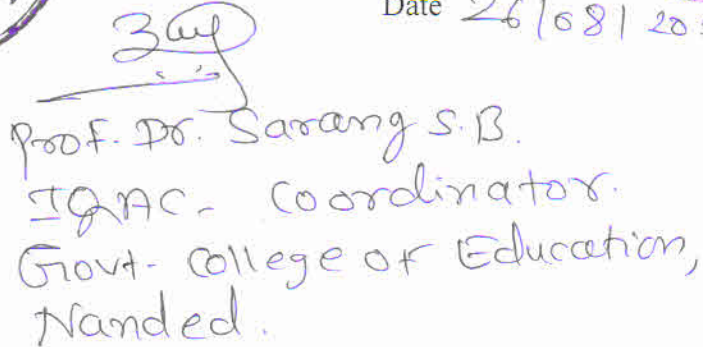 Date 26/08/20
Prof. Dr. Sarang S.B.
IQAC- Coordinator.
Govt- College of Education,
Nanded.